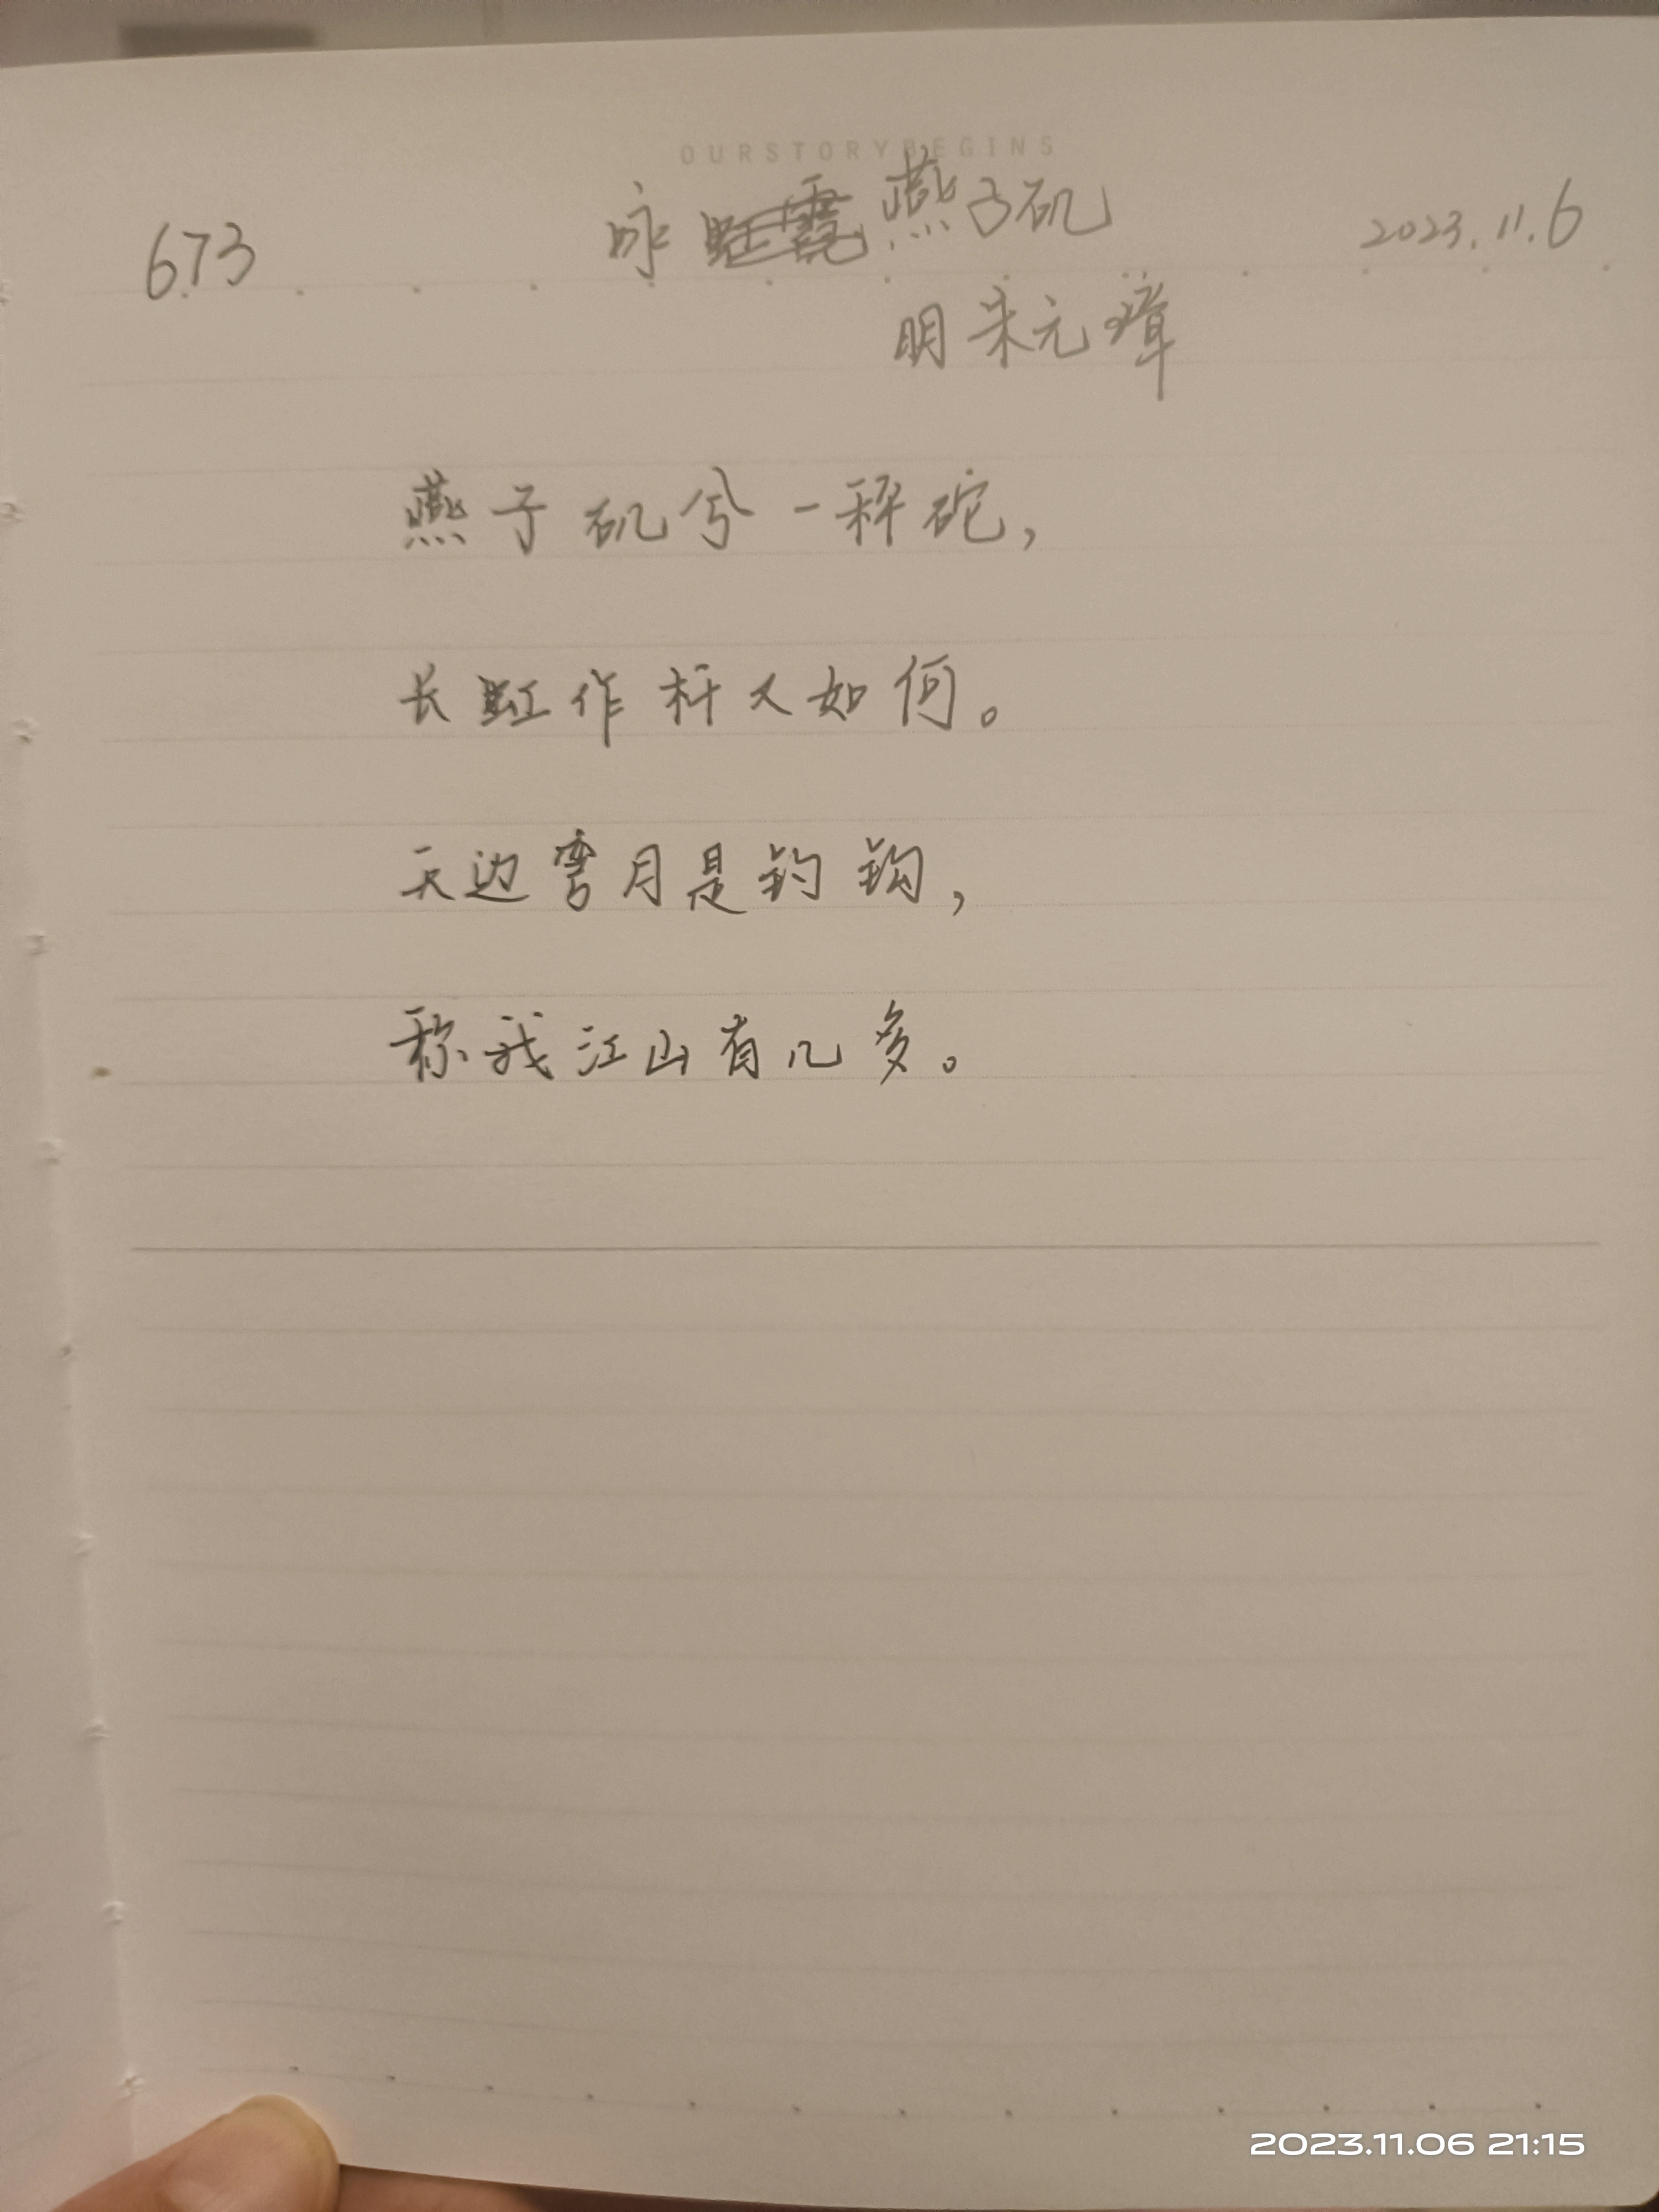 OURSTORYBEGINS
673 咏虹霓燕子矶 2023.11.6
明 朱元璋
燕子矶兮一秤砣，
长虹作杆又如何。
天边弯月是钓钩，
称我江山有几多。
2023.11.06 21:15